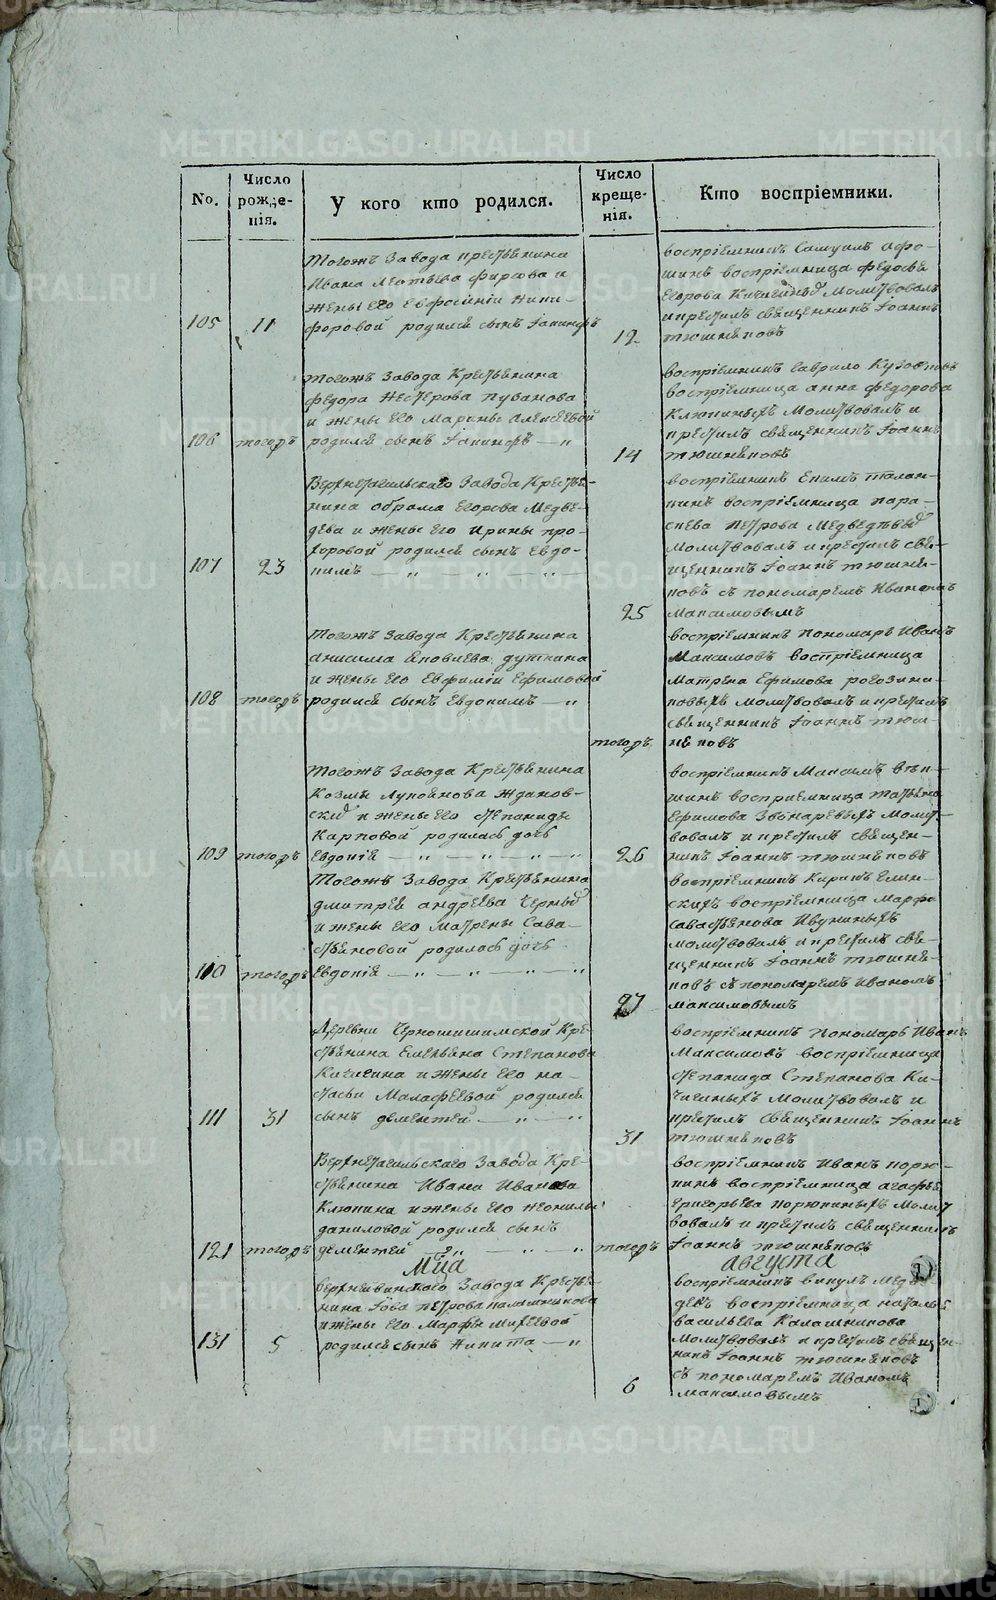 No.
Число
рожде-
нія.
У кого кто родился.
Число
креще-
нія.
Кто воспріемники.
105
11
Тогожъ Завода крестьянина
Ивана Леотьева Фирсова и
жены его Евфиміи Ники-
форовой родился сынъ Іакинфъ
12
воспріемникъ Самуилъ Афо-
шинъ воспріемница Федосья
Егорова Кичигиныхъ Молитвовалъ
и крестилъ священникъ Іоаннъ
Тюшняковъ
106
тогожъ
тогожъ Завода Крестьянина
федора Нестерова Пузанова
и жены его Марины Алексеевой
родился сынъ Іакинфъ — "
14
воспріемникъ Гаврило Кузовниковъ
воспріемница анна федорова
Клюкиныхъ Молитвовалъ и
крестилъ священникъ Іоаннъ
Тюшняковъ
107
23
Верхнетагильскаго Завода Крестья-
нина абрама Егорова Медве-
дева и жены его Ирины про-
хоровой родился сынъ Евдо-
кимъ — " — " — " —
25
воспріемникъ Екимъ Талан-
кинъ воспріемница пара-
скева петрова Медведевыхъ
Молитвовалъ и крестилъ свя-
щенникъ Іоаннъ тюшня-
ковъ съ пономаремъ Иваномъ
Максимовымъ
108
тогожъ
Тогожъ Завода Крестьянина
анисима Яковлева дуткина
и жены его Евфиміи Ефимовой
родился сынъ Евдокимъ — "
тогожъ
воспріемникъ пономарь Иванъ
Максимовъ воспріемница
Матрена Ефимова рогозини-
ковыхъ молитвовалъ и крестилъ
священникъ Іоаннъ тюш-
няковъ
109
тогожъ
Тогожъ Завода Крестьянина
Козмы Лупоянова Жданов-
скихъ и жены его Степаниды
Карповой родилась дочь
Евдокія — " — " — " — "
26
воспріемникъ Максимъ вяп-
шинъ воспріемница татьяна
Ефимова Звонаревыхъ Молит-
вовалъ и крестилъ священ-
никъ Іоаннъ тюшняковъ
110
тогожъ
Тогожъ Завода Крестьянина
дмитрея андреева Черныхъ
и жены его Матрены Сава-
стьяновой родилась дочь
Евдокія — " — " — " — "
27
воспріемникъ Карпъ Елин-
скихъ воспріемница Марфа
Савастьянова Ивукиныхъ
молитвовалъ и крестилъ свя-
щенникъ Іоаннъ тюшня-
ковъ съ пономаремъ Иваномъ
максимовымъ
111
31
Деревни Черношишимской Кре-
стьянина Емельяна Степанова
Кичигина и жены его на-
стасьи Малафеевой родился
сынъ дементей — " — "
31
воспріемникъ пономарь Иванъ
Максимовъ воспріемница
степанида Степанова Ки-
чигиныхъ Молитвовалъ и
крестилъ священникъ Іоаннъ
тюшняковъ
121
тогожъ
Верхнетагильскаго Завода Кре-
стьянина Ивана Иванова
Клюкина и жены его Неонилы
даниловой родился сынъ
дементей — " — " — "
тогожъ
воспріемникъ Иванъ корю-
кинъ воспріемница агафья
григорьева корюкиныхъ Молит
вовалъ и крестилъ священникъ
Іоаннъ тюшняковъ
Мца
августа
131
5
Верхнейвинскаго Завода Крестья-
нина Іова петрова калашникова
и жены его Марфы Михеевой
родился сынъ Никита — "
6
воспріемникъ викулъ Медве
девъ воспріемница наталья
васильева Калашникова
Молитвовалъ и крестилъ священ-
никъ Іоаннъ тюшняковъ
съ пономаремъ Иваномъ
максимовымъ
METRIKI.GASO-URAL.RU